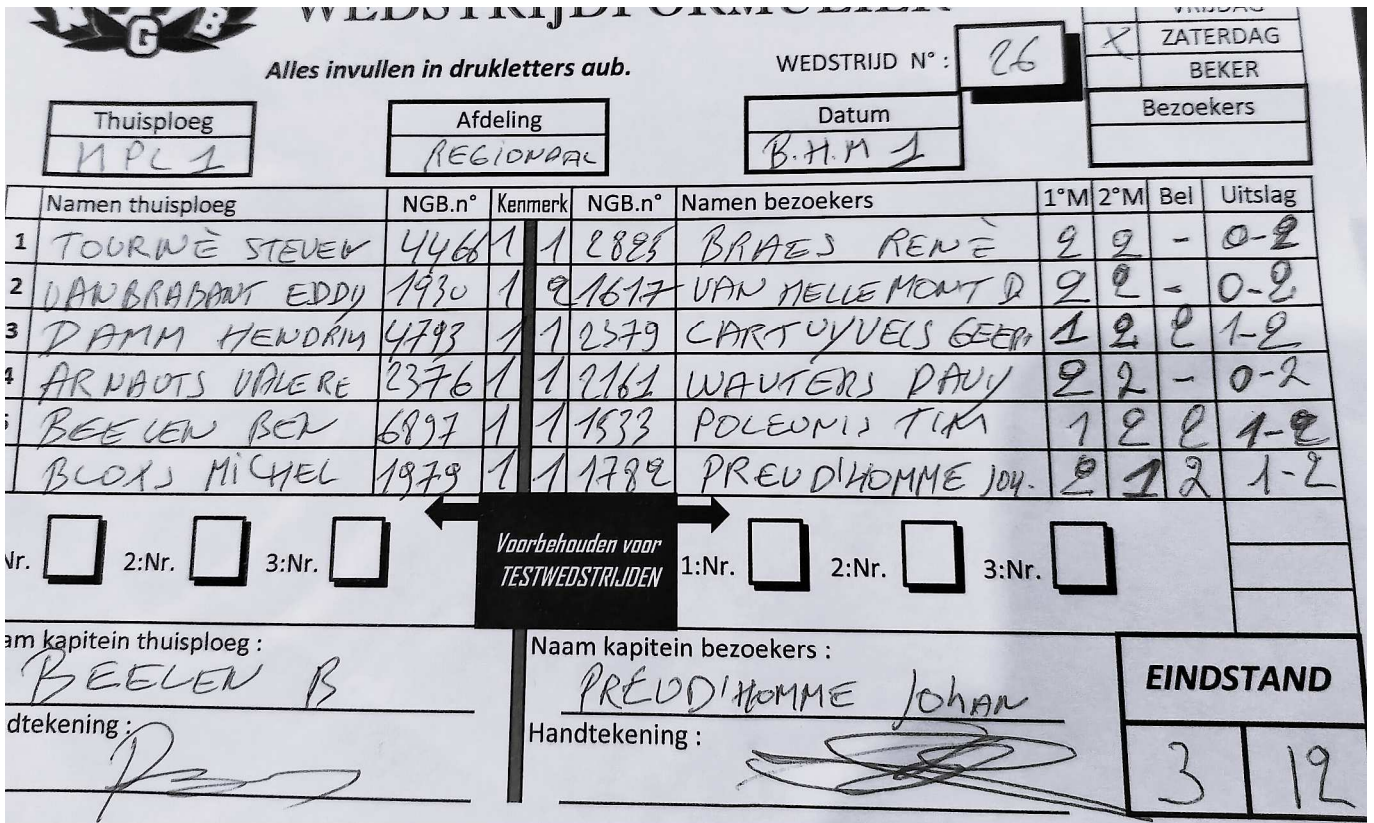 WEDSTRIJDFORMULIER
G B
VRIJDAG
X ZATERDAG
BEKER
Alles invullen in drukletters aub.
WEDSTRIJD N° : 26
Thuisploeg
Afdeling
Datum
Bezoekers
MPL 1
REGIONAAL
B.H.M 1
Namen thuisploeg NGB.n° Kenmerk NGB.n° Namen bezoekers 1°M 2°M Bel Uitslag
1 TOURNÈ STEVEN 4466 1 1 2825 BRAES RENÈ 2 2 - 0-2
2 VANBRABANT EDDY 1930 1 2 1617 VAN MELLEMONT D 2 2 - 0-2
3 DAMM HENDRIK 4793 1 1 2379 CARTUYVELS GEER. 1 2 2 1-2
4 ARNAUTS VALERE 2376 1 1 2161 WAUTERS DAVY 2 2 - 0-2
BEELEN BEN 6897 1 1 1533 POLEUNIS TIM 1 2 2 1-2
BLOKS MICHEL 1979 1 1 1782 PREUD'HOMME JOH. 2 1 2 1-2
Nr. 2:Nr. 3:Nr.
Voorbehouden voor
TESTWEDSTRIJDEN
1:Nr. 2:Nr. 3:Nr.
am kapitein thuisploeg :
BEELEN B
Naam kapitein bezoekers :
PREUD'HOMME JOHAN
EINDSTAND
dtekening :
Handtekening :
3 12